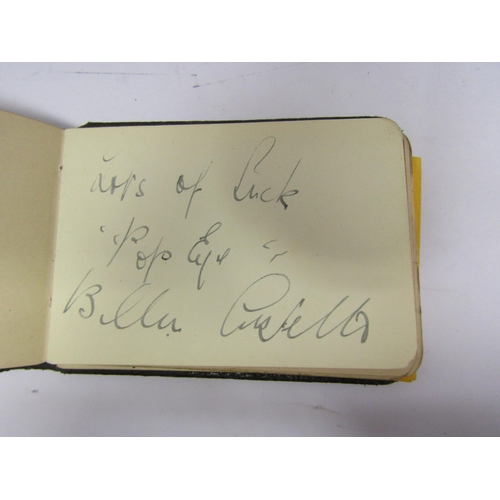 Lots of Luck
"Pop Eye"
Billy Costello